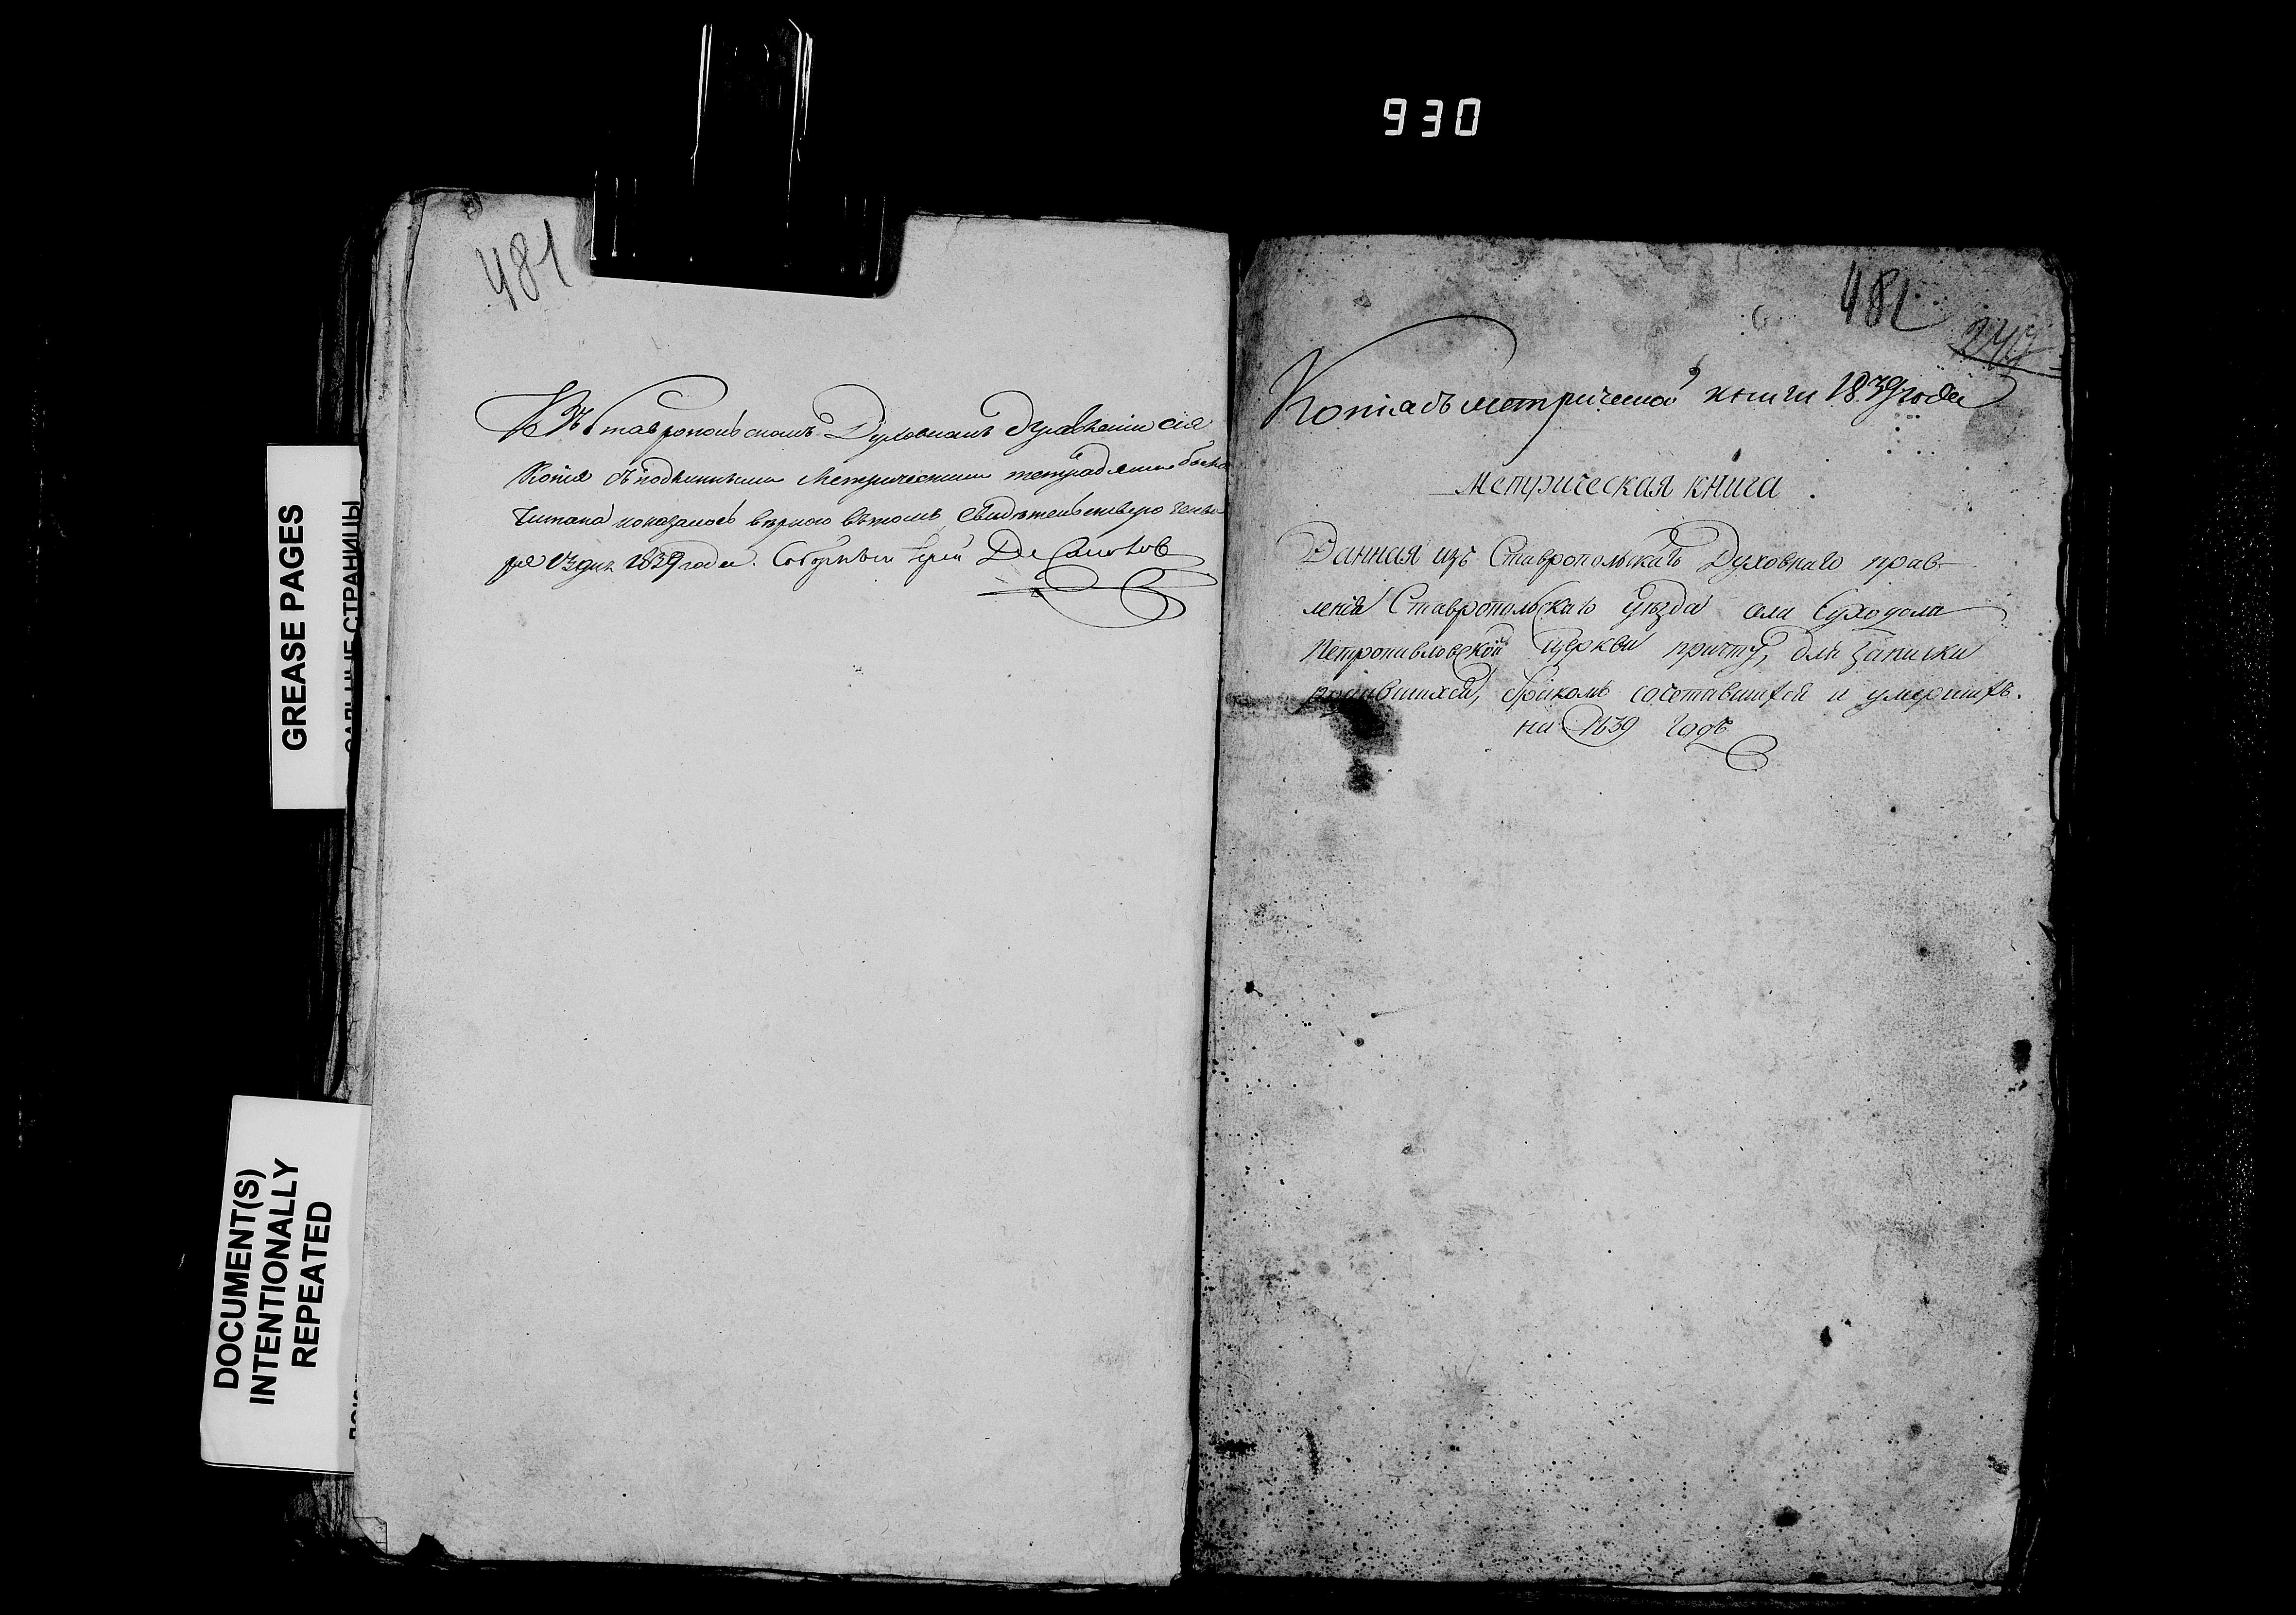 930
GREASE PAGES
САЛЬНЫЕ СТРАНИЦЫ
DOCUMENT(S)
INTENTIONALLY
REPEATED
481
Въ Ставропольскомъ Духовномъ Правленіи сія
Копія съ подлинными Метрическими тетрадями была
читана и оказалось вѣрною вътомъ свидѣтельствую генва
ря 13 дня 1839 года. Соборный Іерей
482
Копія съ метрической книги 1839 года
Метрическая книга
Данная изъ Ставропольскаго Духовнаго прав-
ленія Ставропольскаго уѣзда села Суходола
Петропавловской церкви причту, для записки
родившихся, бракомъ сочетавшихся и умершихъ.
на 1839 годъ